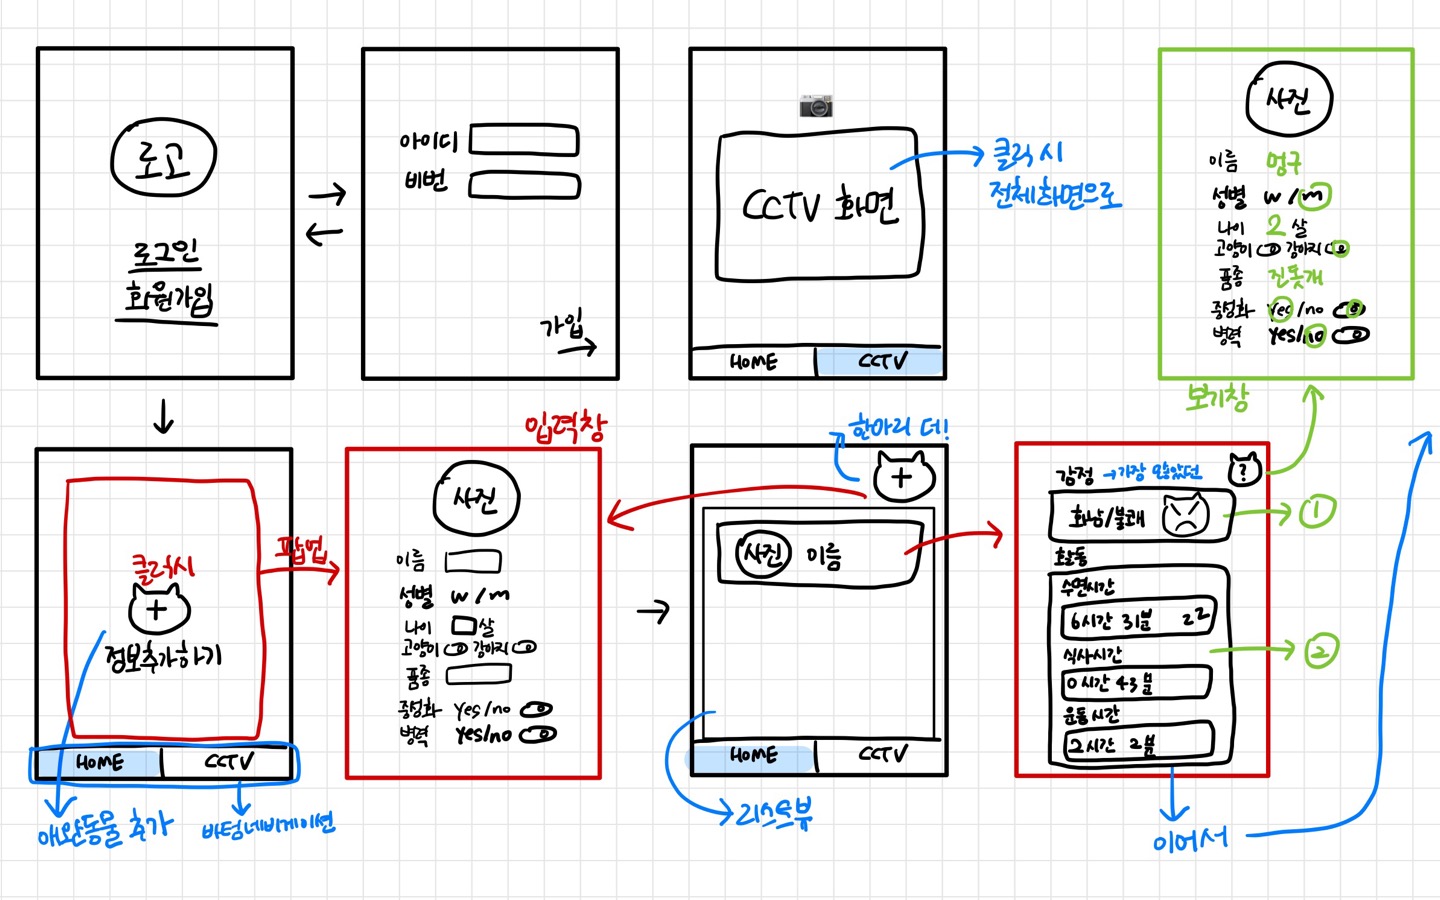 로고
로그인
회원가입
아이디
비번
가입
CCTV 화면
HOME CCTV
클릭 시
전체화면으로
사진
이름 멍구
성별 w / m
나이 2 살
고양이 강아지
품종 진돗개
중성화 yes/no
병력 yes/no
보기창
클릭시
정보추가하기
HOME CCTV
애완동물 추가
바텀네비게이션
팝업
입력창
사진
이름
성별 w / m
나이 살
고양이 강아지
품종
중성화 Yes/no
병력 yes/no
한마리 더!
사진 이름
HOME CCTV
리스트뷰
감정 → 가장 많았던
?
화남/불쾌
1
활동
수면시간
6시간 31분 zz
식사시간
0시간 43분
운동시간
2시간 2분
2
이어서